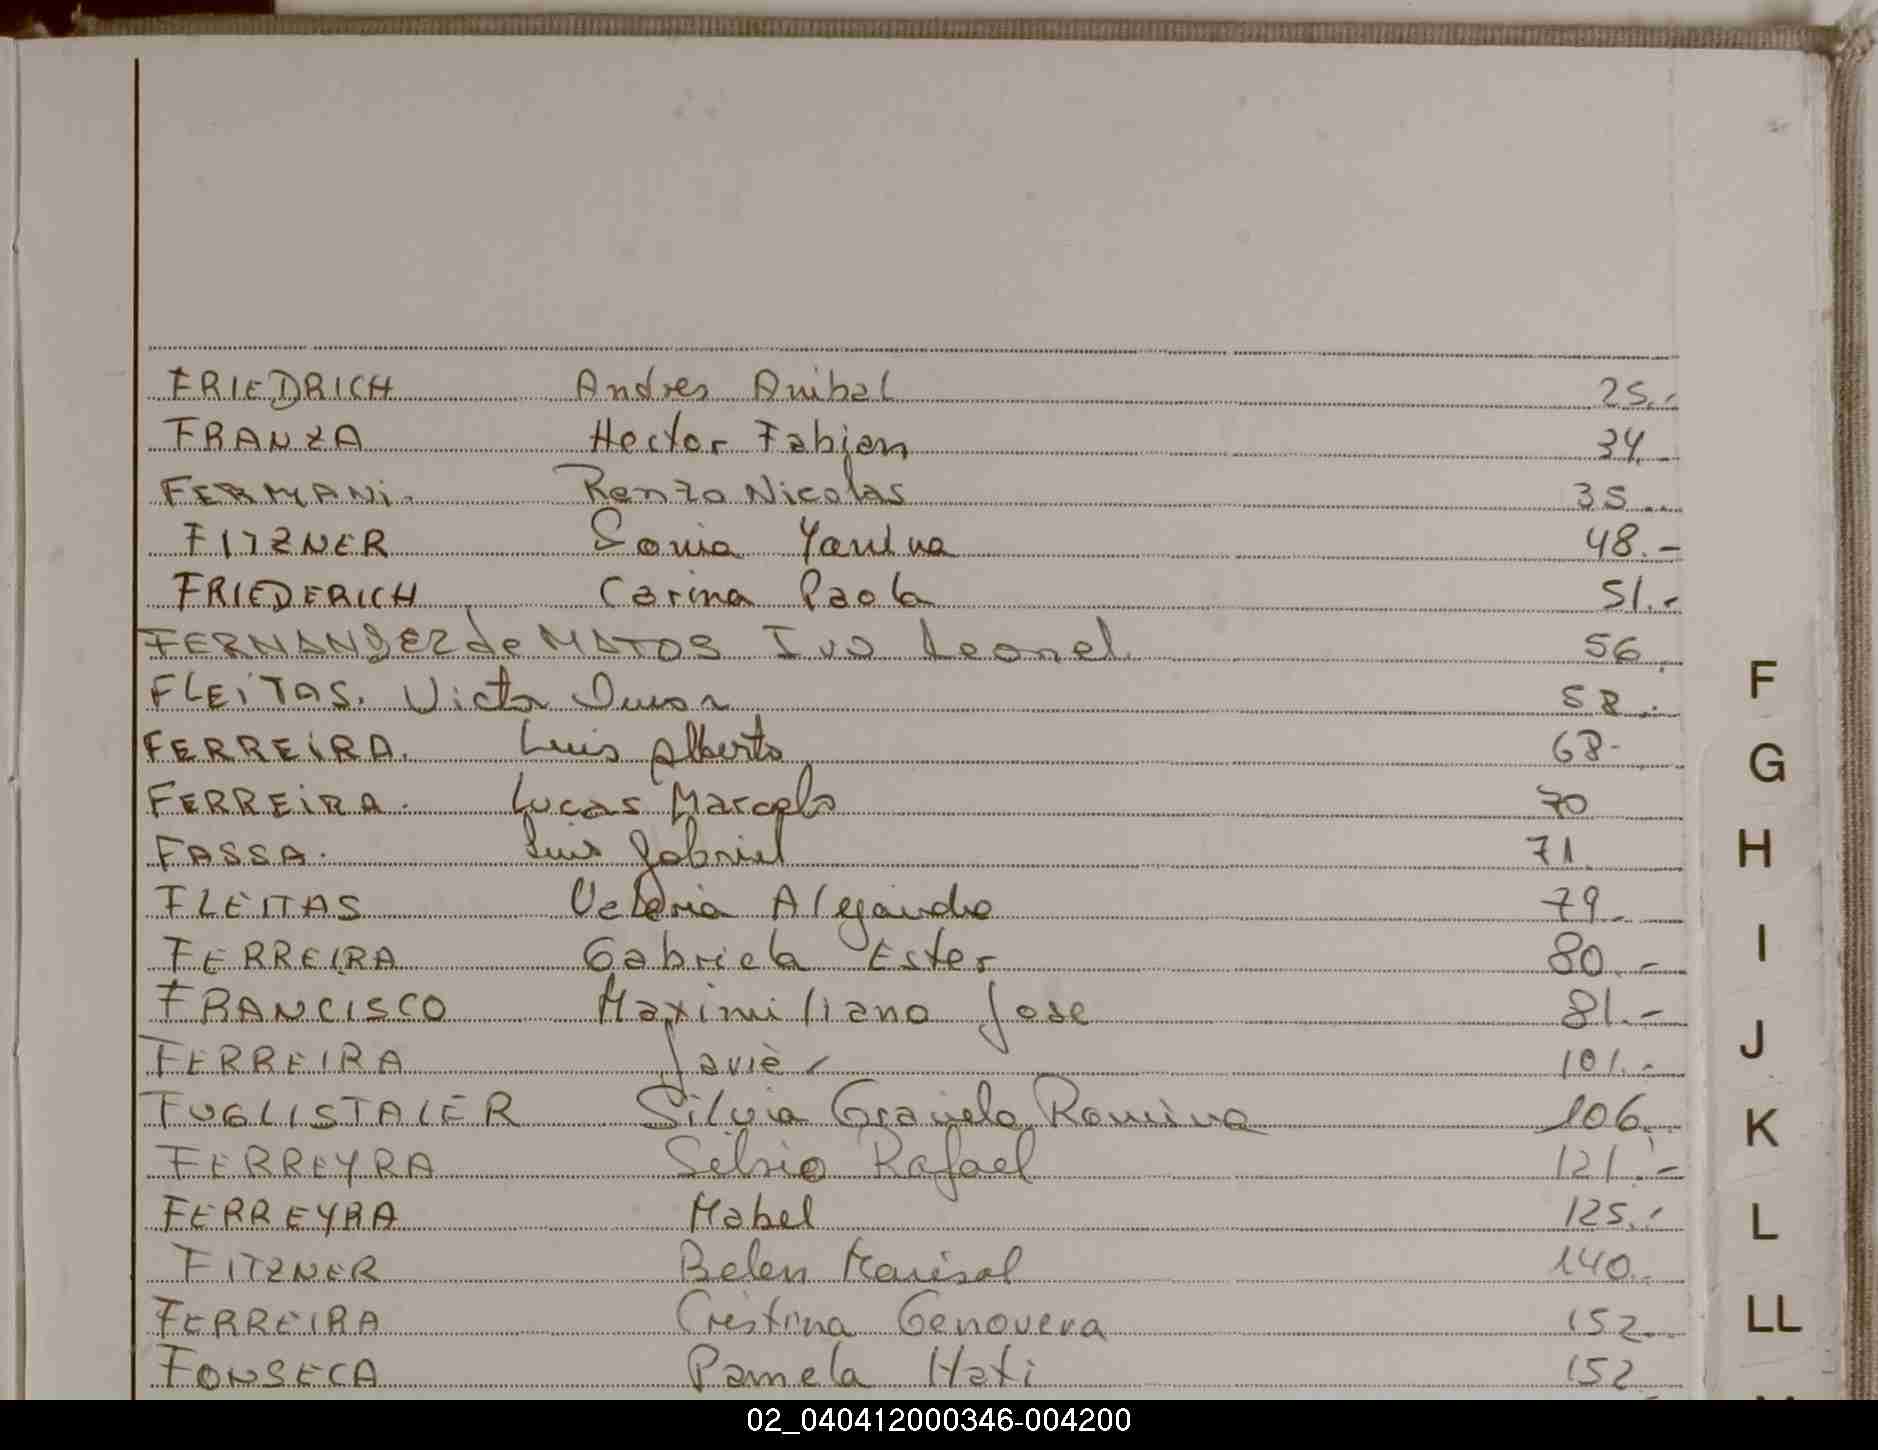 FRIEDRICH Andres Anibal 25.-
FRANZA Hector Fabian 34.-
FERMANi. Renzo Nicolas 35...
FITZNER Sonia Yanina 48.-
FRIEDERICH Carina Paola 51.-
FERNANDEZ de MATOS Ivo Leonel. 56.
FLEiTAS. Victor 58.-
FERREiRA. Luis Alberto 68-
FERREiRA. Lucas Marcelo 70
FASSA. Luis Gabriel 71.
FLEITAS Valeria Alejandra 79.-
FERREIRA Gabriela Ester 80.-
FRANCISCO Maximiliano Jose 81.-
FERREIRA Javier 101.-
FUGLISTALER Silvia Graciela Romina 106.-
FERREYRA Silvio Rafael 121.-
FERREYRA Mabel 125.-
FITZNER Belen Marisol 140.-
FERREIRA Cristina Genoveva 152.-
FONSECA Pamela Hati 152
F
G
H
I
J
K
L
LL
02_040412000346-004200